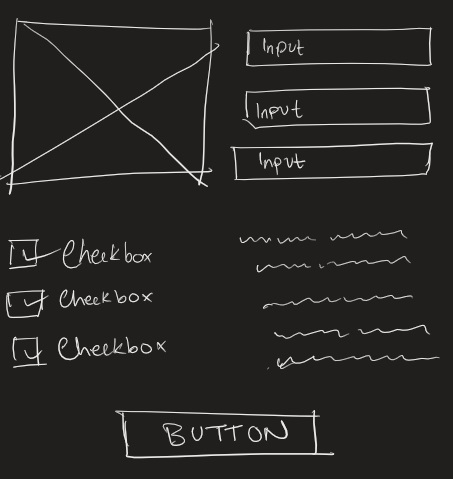 Input
Input
Input
Checkbox
Checkbox
Checkbox
BUTTON